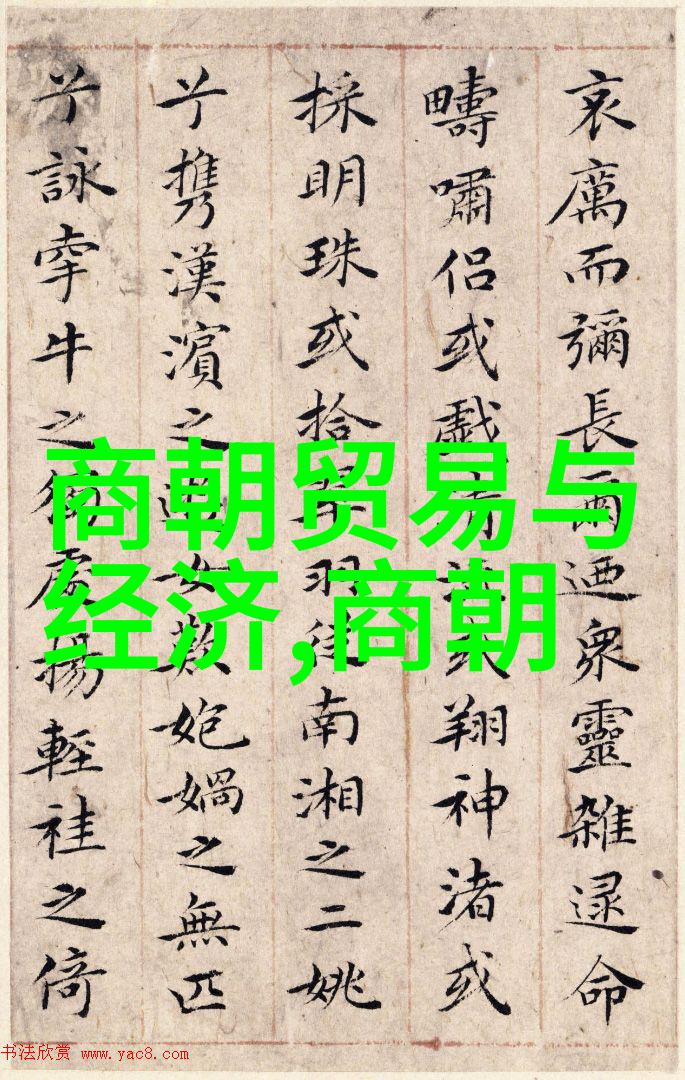 哀厲而彌長爾迺衆靈雜遝命
疇嘯侶或戲或翔神渚或
採明珠或拾翠羽從南湘之二姚
兮攜漢濱之遊女歎媧之無匹
兮詠牽牛之獨處揚輕袿之倚
商朝贸易与
经济,商朝
书法欣赏 www.yac8.com